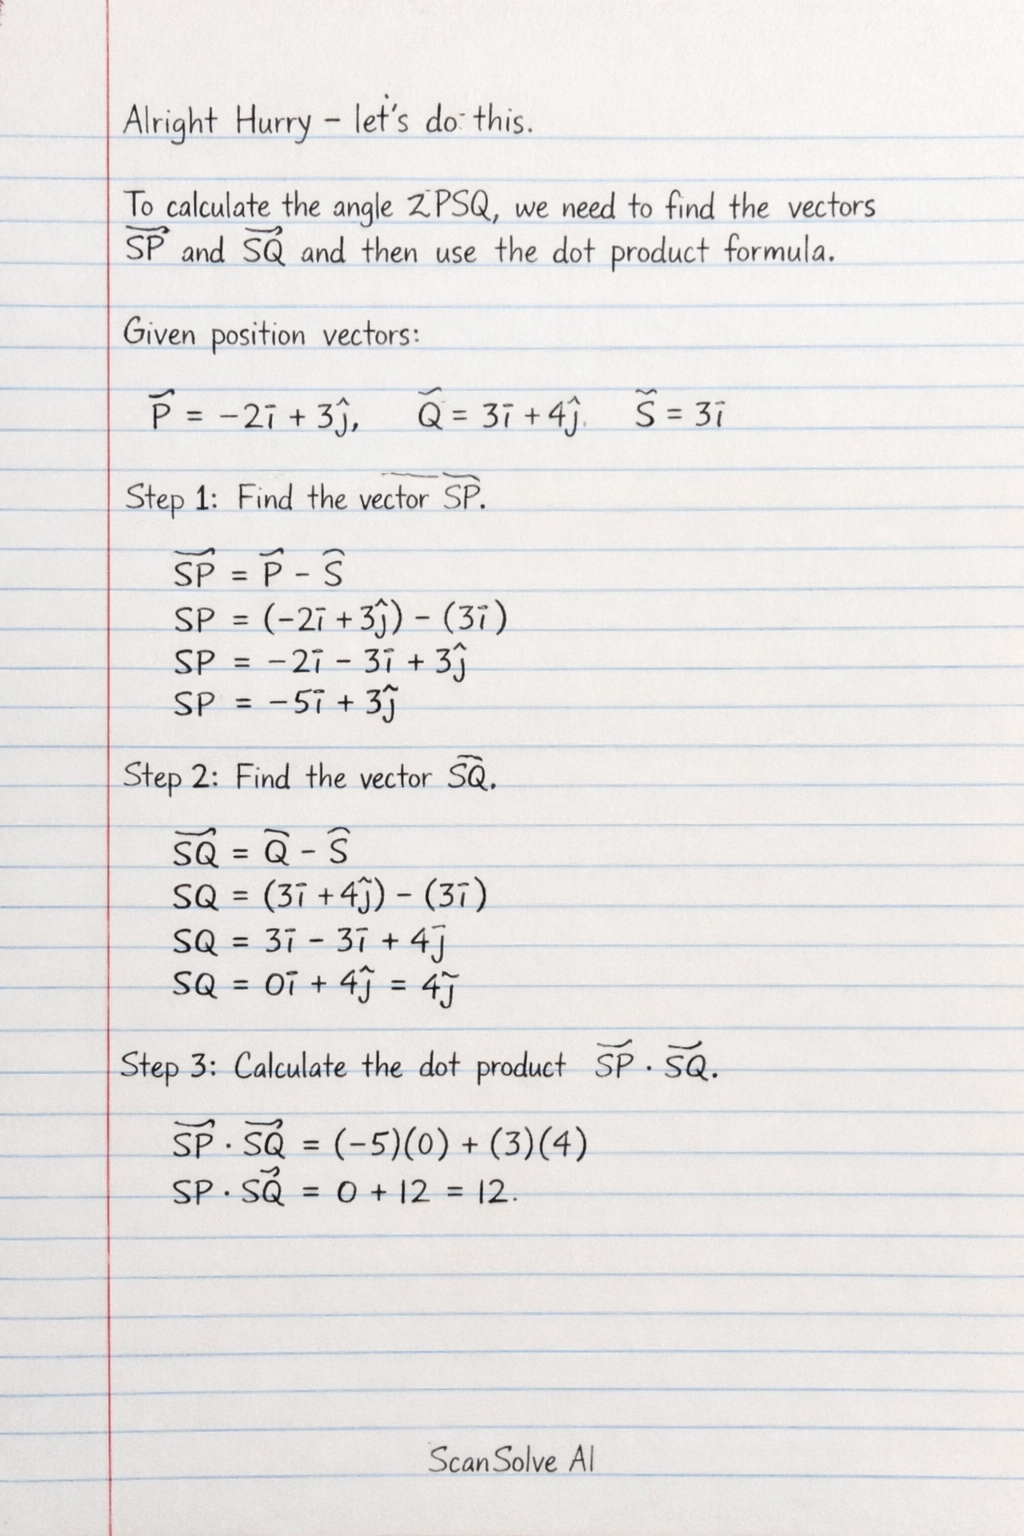 Alright Hurry – let's do this.
To calculate the angle ∠PSQ, we need to find the vectors
SP and SQ and then use the dot product formula.
Given position vectors:
P = −2i + 3ĵ, Q = 3i + 4ĵ. S = 3i
Step 1: Find the vector SP.
SP = P − S
SP = (−2i + 3ĵ) − (3i)
SP = −2i − 3i + 3ĵ
SP = −5i + 3j
Step 2: Find the vector SQ.
SQ = Q − S
SQ = (3i + 4j) − (3i)
SQ = 3i − 3i + 4j
SQ = 0i + 4ĵ = 4j
Step 3: Calculate the dot product SP · SQ.
SP · SQ = (−5)(0) + (3)(4)
SP · SQ = 0 + 12 = 12.
ScanSolve AI